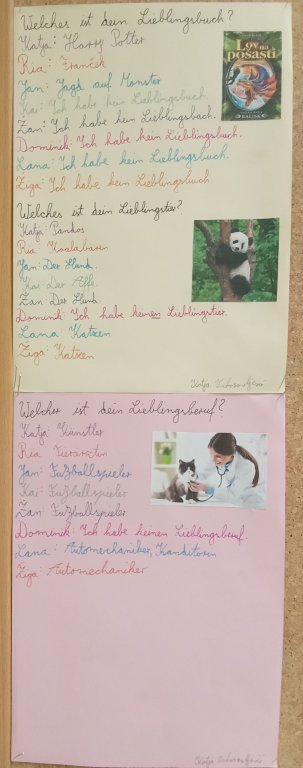 Welches ist dein Lieblingsbuch?
Katja: Harry Potter
Ria: Franček
Jan: Jagd auf Monster
Kai: Ich habe kein Lieblingsbuch.
Žan: Ich habe kein Lieblingsbuch.
Dominik: Ich habe kein Lieblingsbuch.
Lana: Ich habe kein Lieblingsbuch.
Žiga: Ich habe kein Lieblingsbuch
Lov na
pošasti
BALISK
Welches ist dein Lieblingstier?
Katja: Pandas
Ria: Koalabären
Jan: Der Hund.
Kai: Der Affe.
Žan: Der Hund
Dominik: Ich habe keinen Lieblingstier.
Lana: Katzen
Žiga: Katzen
Katja
Welcher ist dein Lieblingsberuf?
Katja: Künstler
Ria: Tierärztin
Jan: Fußballspieler
Kai: Fußballspieler
Žan: Fußballspieler
Dominik: Ich habe keinen Lieblingsberuf.
Lana: Automechaniker, Konditorin
Žiga: Automechaniker
Katja